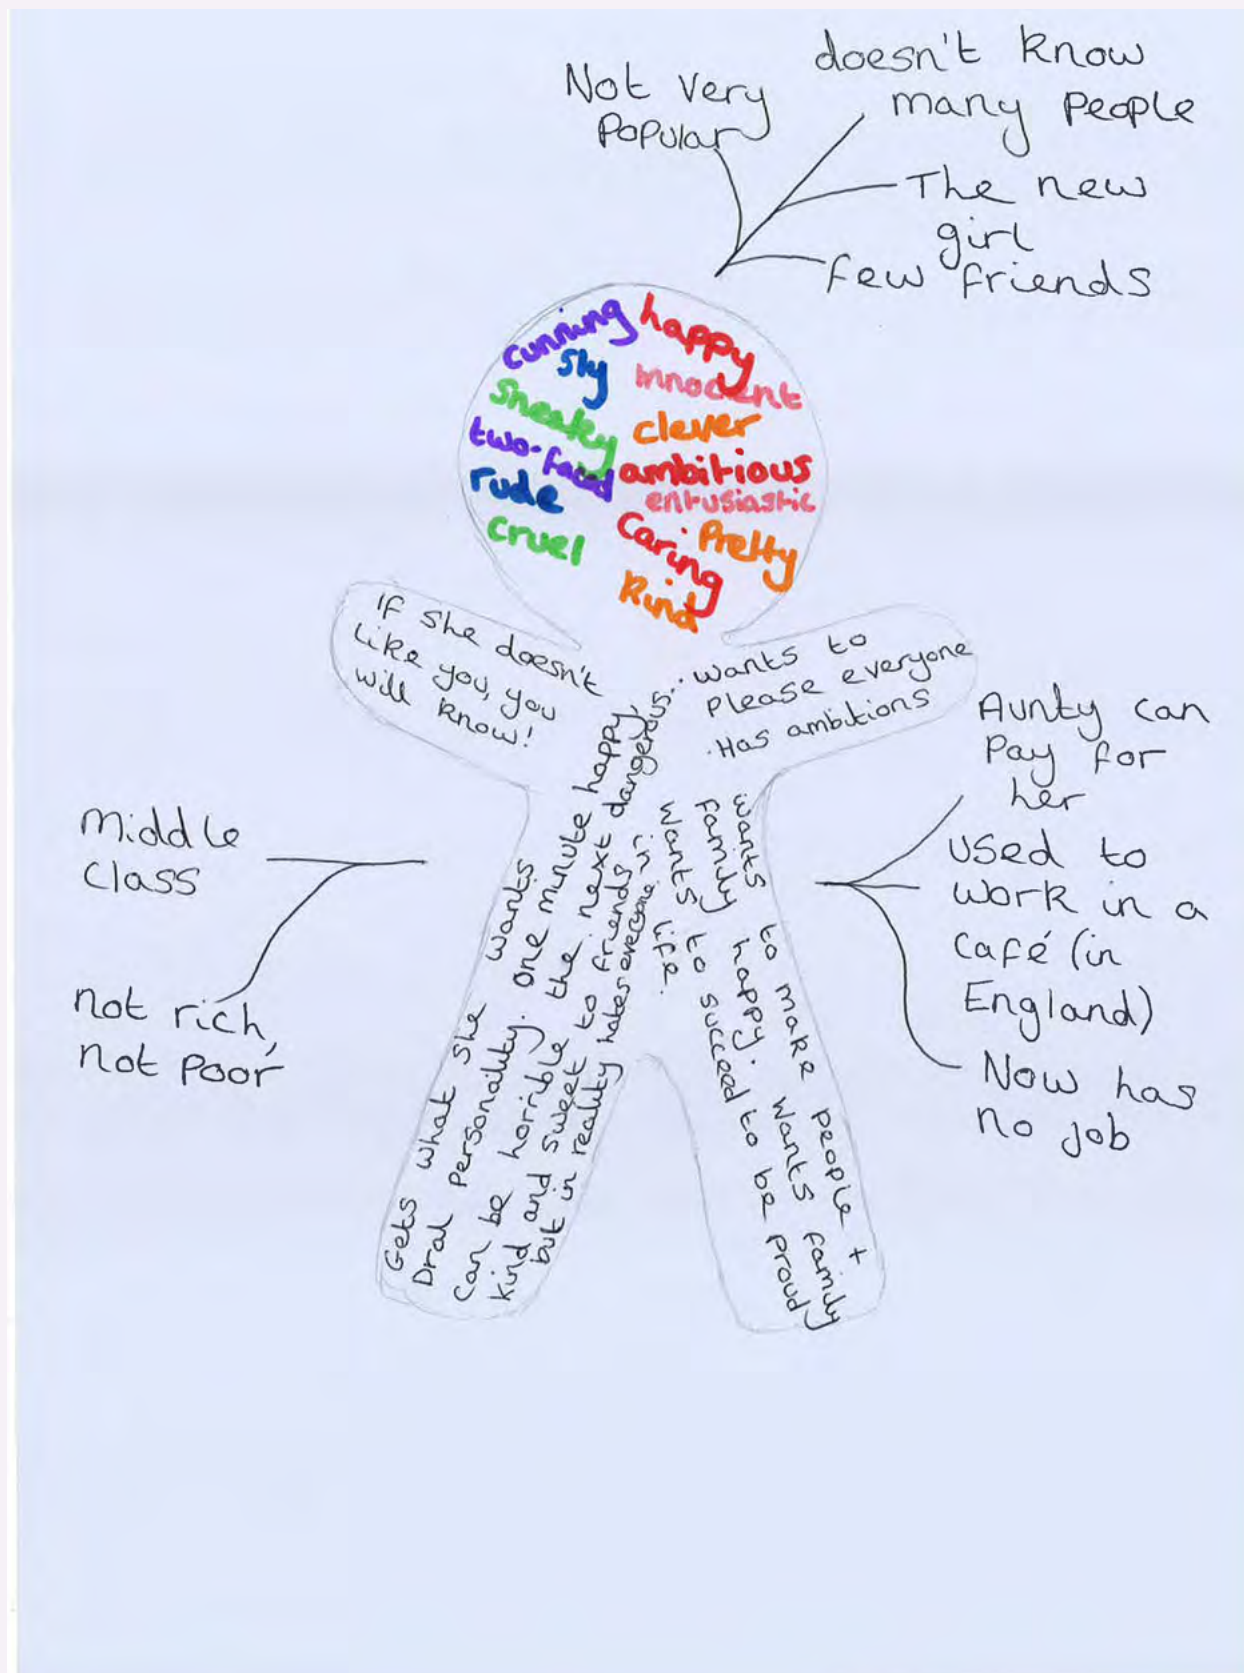 Not very
popular
doesn't know
many people
The new
girl
few friends
cunning
sly
sneaky
two-faced
rude
cruel
happy
innocent
clever
ambitious
entusiastic
caring
Pretty
kind
If she doesn't
like you, you
will know!
.wants to
please everyone
.Has ambitions
Middle
class
not rich,
not poor
Gets what she wants
Dral personality. One minute happy,
can be horrible the next dangerous..
kind and sweet to friends
but in reality hates everyone in
wants to make people +
family happy. wants family
wants to succeed to be proud
life.
Aunty can
pay for
her
used to
work in a
café (in
England)
Now has
no job